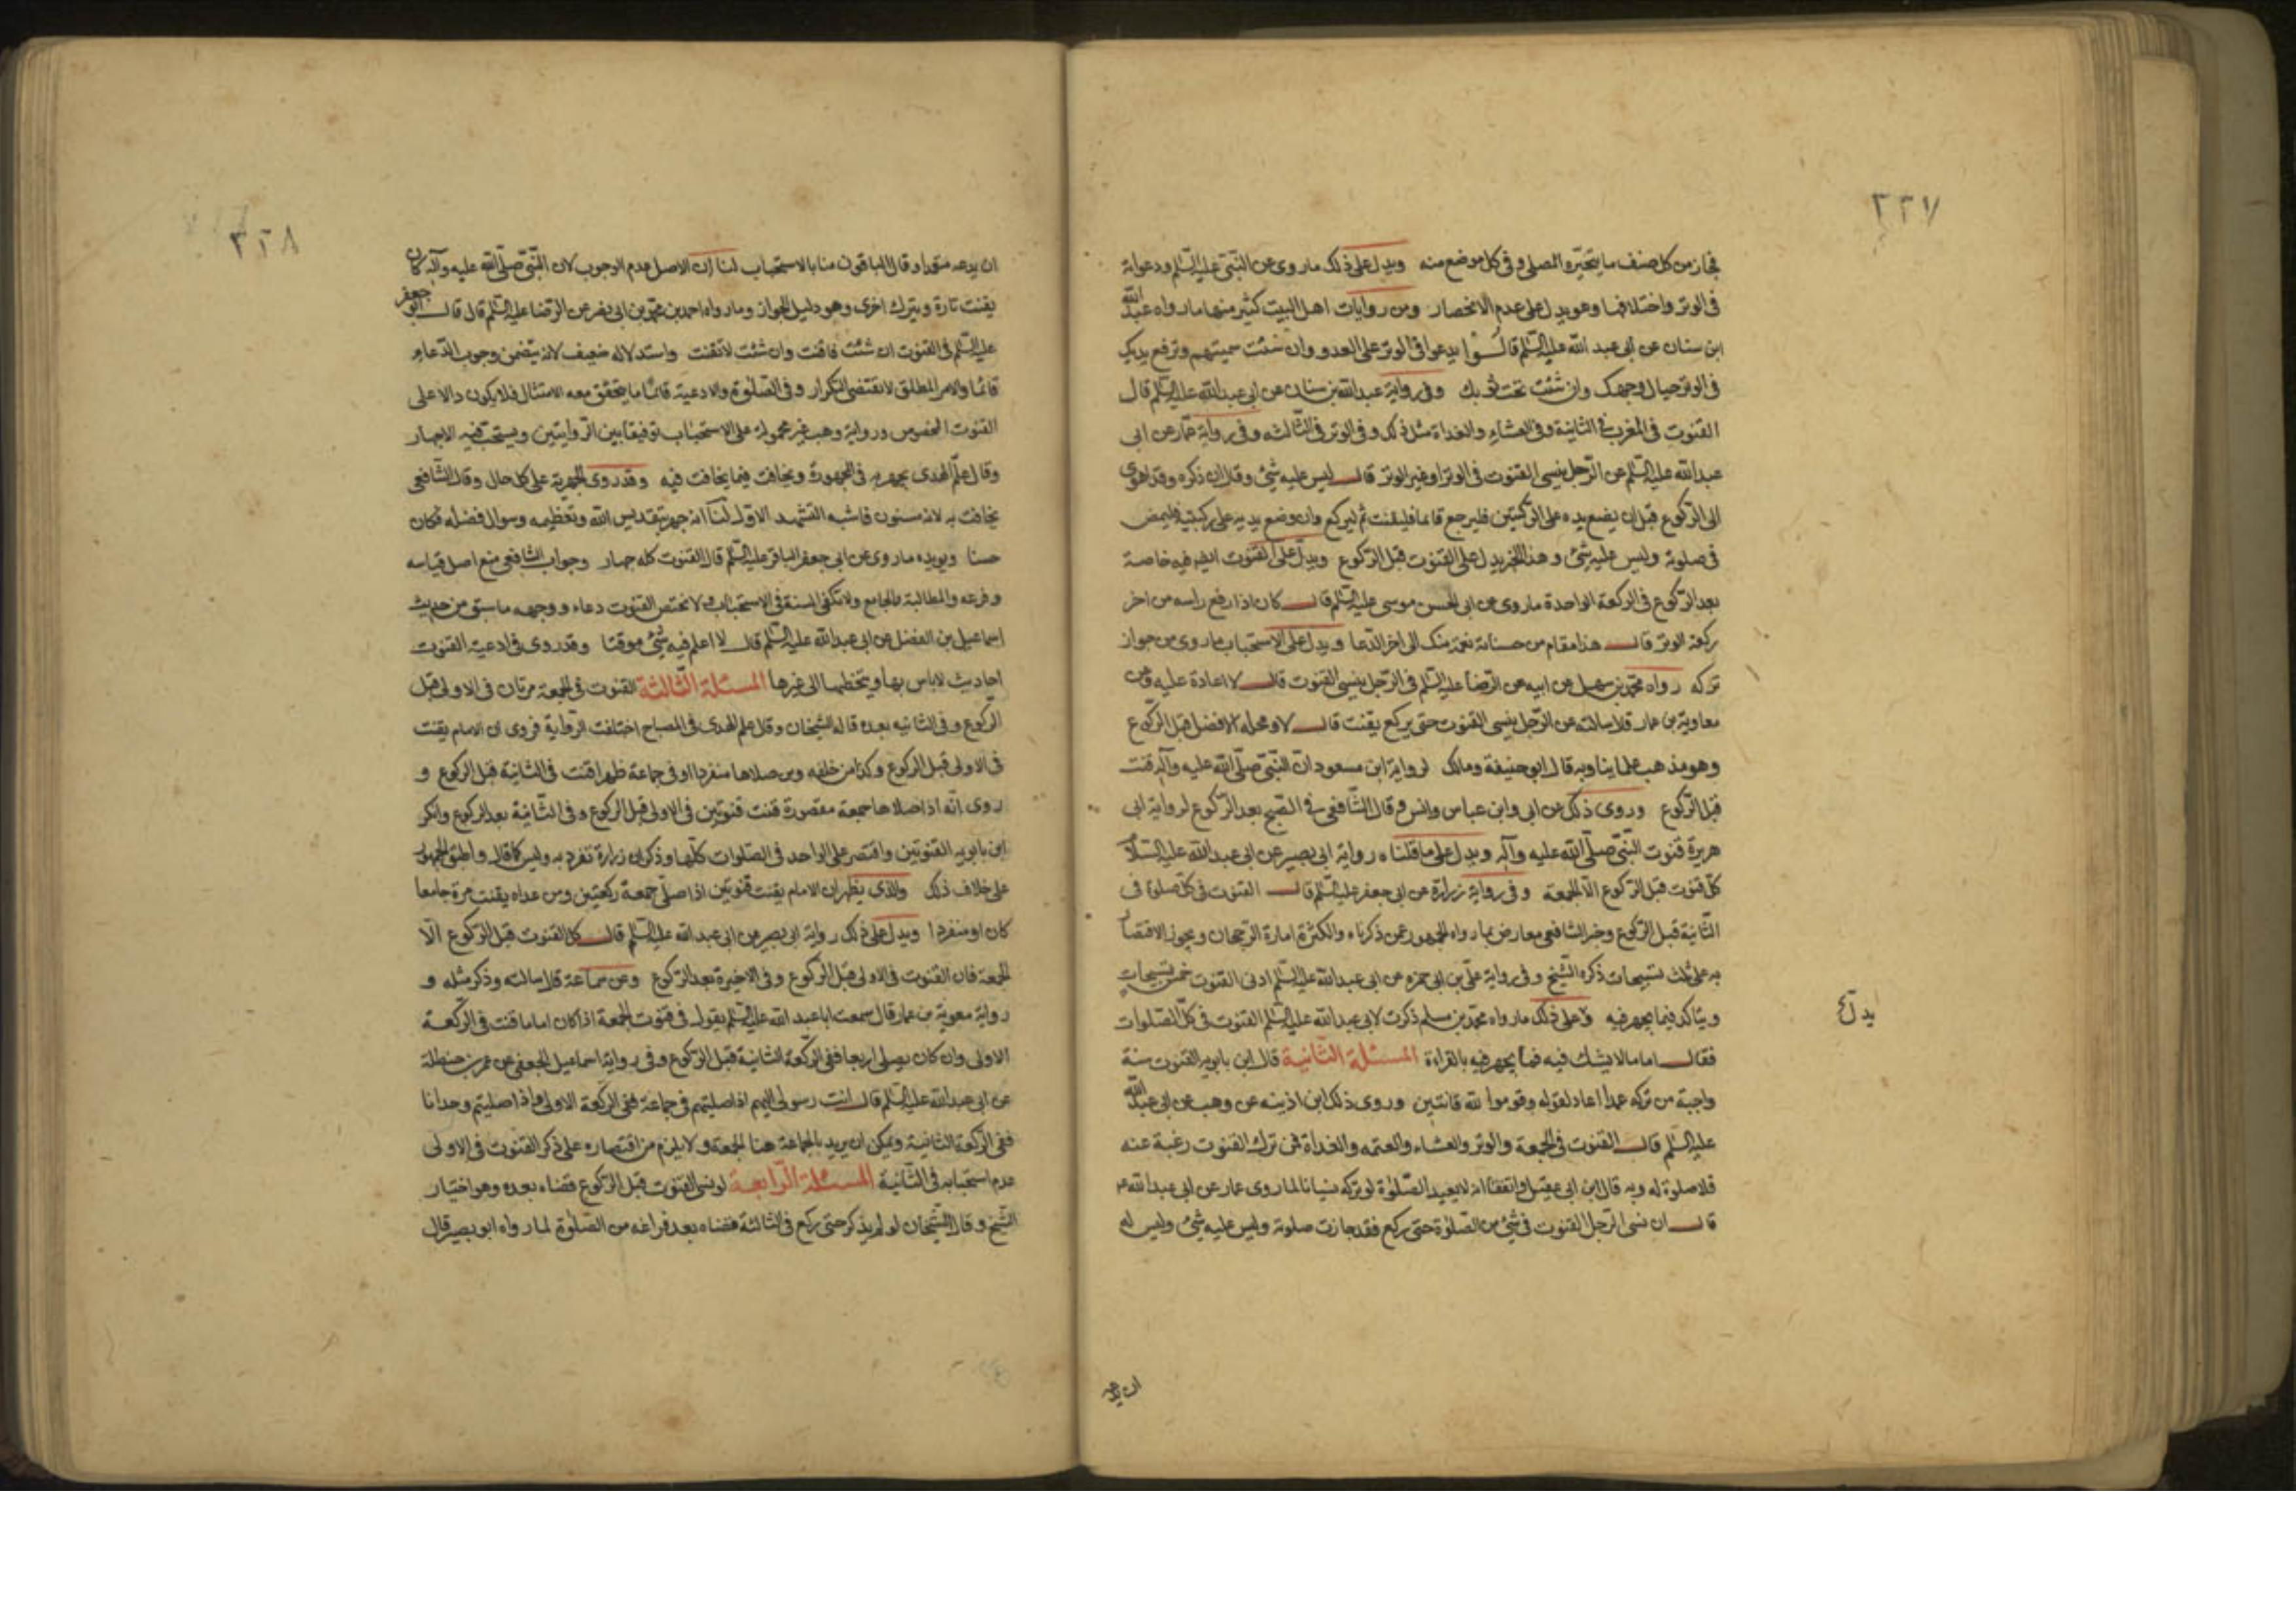 ٣٢٧
فجاز من كل صنف ما يتخيره المصلي و في كل موضع منه ويدل على ذلك ما روي عن النبي عليه السلم ودعواته
في الوتر واختلافها وهو يدل على عدم الانحصار ومن روايات اهل البيت كثير منها ما رواه عبد الله
ابن سنان عن ابي عبد الله عليه السلم قال يدعوا في الوتر على العدو وان شئت سميتهم وترفع يديك
في الوتر حيال وجهك وان شئت تحت ثوبك وفي رواية عبد الله بن سنان عن ابي عبد الله عليه السلم قال
القنوت في المغرب في الثانية وفي العشاء والغداة مثل ذلك وفي الوتر في الثالثه وفي رواية عمار عن ابي
عبد الله عليه السلم عن الرجل ينسى القنوت في الوتر او غير الوتر قال ليس عليه شئ وقال ان ذكره وقد اهوى
الى الركوع قبل ان يضع يده على الركبتين فليرجع قائما فليقنت ثم ليركع وان وضع يديه على ركبتيه فليمض
في صلوته وليس عليه شئ وهذا الخبر يدل على القنوت قبل الركوع ويدل على القنوت ايضا فيه خاصة
بعد الركوع في الركعة الواحدة ما روي عن ابي الحسن موسى عليه السلم قال كان اذا رفع راسه من اخر
ركعة الوتر قال هذا مقام من حسناته نعمة منك الى اخر الدعا ويدل على الاستحباب ما روي من جواز
تركه رواه محمد بن سهيل عن ابيه عن الرضا عليه السلم في الرجل ينسى القنوت قال لا اعادة عليه وعن
معاوية بن عمار قال سالته عن الرجل ينسى القنوت حتى يركع يقنت قال لا ومحله الافضل قبل الركوع
وهو مذهب علماينا وبه قال ابو حنيفة ومالك لرواية ابن مسعود ان النبي صلى الله عليه وآله قنت
قبل الركوع وروى ذلك عن ابي وابن عباس وانس وقال الشافعي في الصبح بعد الركوع لرواية ابي
هريرة قنوت النبي صلى الله عليه وآله ويدل على ما قلناه رواية ابي بصير عن ابي عبد الله عليه السلام
كل قنوت قبل الركوع الا الجمعة وفي رواية زرارة عن ابي جعفر عليه السلم قال القنوت في كل صلوة في
الثانية قبل الركوع وخبر الشافعي معارض بما رواه الجمهور عمن ذكرناه والكثرة امارة الرجحان ويجوز الاقتصار
به على ثلث تسبيحات ذكره الشيخ وفي رواية علي بن ابي حمزه عن ابي عبد الله عليه السلم ادنى القنوت خمس تسبيحات
ويتاكد فيما يجهر فيه ولا على ذلك ما رواه محمد بن مسلم ذكرت لابي عبد الله عليه السلم القنوت في كل الصلوات
فقال اما ما لا يشك فيه فما يجهر فيه بالقراءة المسئلة الثانية قال ابن بابويه القنوت سنة
واجبة من تركه عمدا اعاد لقوله وقوموا لله قانتين وروى ذلك ابن اذينه عن وهب عن ابي عبد الله
عليه السلم قال القنوت في الجمعة والوتر والعشاء والعتمه والغداة فمن ترك القنوت رغبة عنه
فلا صلوة له وبه قال ابن ابي عقيل واتفقا انه لا يعيد الصلوة لو تركه نسيانا لما روى عمار عن ابي عبد الله ع
قال ان نسى الرجل القنوت في شئ من الصلوة حتى يركع فقد جازت صلوته وليس عليه شئ وليس له
يدل
ان يدعه
٣٢٨
ان يدعه متعمدا وقال الباقون منا بالاستحباب لنا ان الاصل عدم الوجوب لان النبي صلى الله عليه وآله كان
يقنت تارة ويترك اخرى وهو دليل الجواز وما رواه احمد بن محمد بن ابي نصر عن الرضا عليه السلم قال قال ابو جعفر
عليه السلم في القنوت ان شئت فاقنت وان شئت لا تقنت واستدلاله ضعيف لانه يتضمن وجوب الدعاء
قائما والامر المطلق لا يقتضي التكرار وفي الصلوة والادعية قائما ما يتحقق معه الامتثال فلا يكون دالا على
القنوت المخصوص ورواية وهب غير محمولة على الاستحباب توفيقا بين الروايتين ويستحب فيه الاجهار
وقال علم الهدى يجهر به في المجهورة ويخافت فيما يخافت فيه وقد روى الجهر به على كل حال وقال الشافعي
يخافت به لانه مسنون فاشبه التشهد الاول لنا انه جهر بتقديس الله وتعظيمه وسوال فضله فكان
حسنا ويويده ما روى عن ابي جعفر الباقر عليه السلم قال القنوت كله جهار وجواب الشافعي منع اصل قياسه
وفرعه والمطالبة بالجامع ولا تكفي السنة في الاستحباب ولا يختص القنوت دعاء ووجهه ما سبق من حديث
اسماعيل بن الفضل عن ابي عبد الله عليه السلم قال لا اعلم فيه شئ موقتا وقد روى في ادعية القنوت
احاديث لا باس بها ويتخطها الى غيرها المسئلة الثالثة القنوت في الجمعة مرتان في الاولى قبل
الركوع وفي الثانيه بعده قاله الشيخان وقال علم الهدى في المصباح اختلفت الرواية فروى ان الامام يقنت
في الاولى قبل الركوع وكذا من خلفه ومن صلاها منفردا او في جماعة ظهرا قنت في الثانية قبل الركوع و
روى انه اذا صلاها جمعة مقصورة قنت قنوتين في الاولى قبل الركوع وفي الثانية بعد الركوع وانكر
ابن بابويه القنوتين واقتصر على الواحد في الصلوات كلها وذكر ان زرارة تفرد به وليس كما قال واطبق الجمهور
على خلاف ذلك والذي يظهر ان الامام يقنت قنوتين اذا صلى جمعة ركعتين ومن عداه يقنت مرة جامعا
كان او منفردا ويدل على ذلك رواية ابي بصير عن ابي عبد الله عليه السلم قال كل القنوت قبل الركوع الا
الجمعة فان القنوت في الاولى قبل الركوع وفي الاخيرة بعد الركوع وعن سماعة قال سالته وذكر مثله و
رواية معوية بن عمار قال سمعت ابا عبد الله عليه السلم يقول في قنوت الجمعة اذا كان اماما قنت في الركعة
الاولى وان كان يصلي اربعا ففي الركعة الثانية قبل الركوع وفي رواية اسماعيل الجعفي عن عمر بن حنظلة
عن ابي عبد الله عليه السلم قال انت رسولي اليهم اذا صليتم في جماعة ففي الركعة الاولى واذا صليتم وحدانا
ففي الركعة الثانية ويمكن ان يريد بالجماعة هنا الجمعة ولا يلزم من اقتصاره على ذكر القنوت في الاولى
عدم استحبابه في الثانية المسئلة الرابعة لو نسى القنوت قبل الركوع قضاه بعده وهو اختيار
الشيخ وقال الشيخان لو لم يذكر حتى ركع في الثالثة قضاه بعد فراغه من الصلوة لما رواه ابو بصير قال